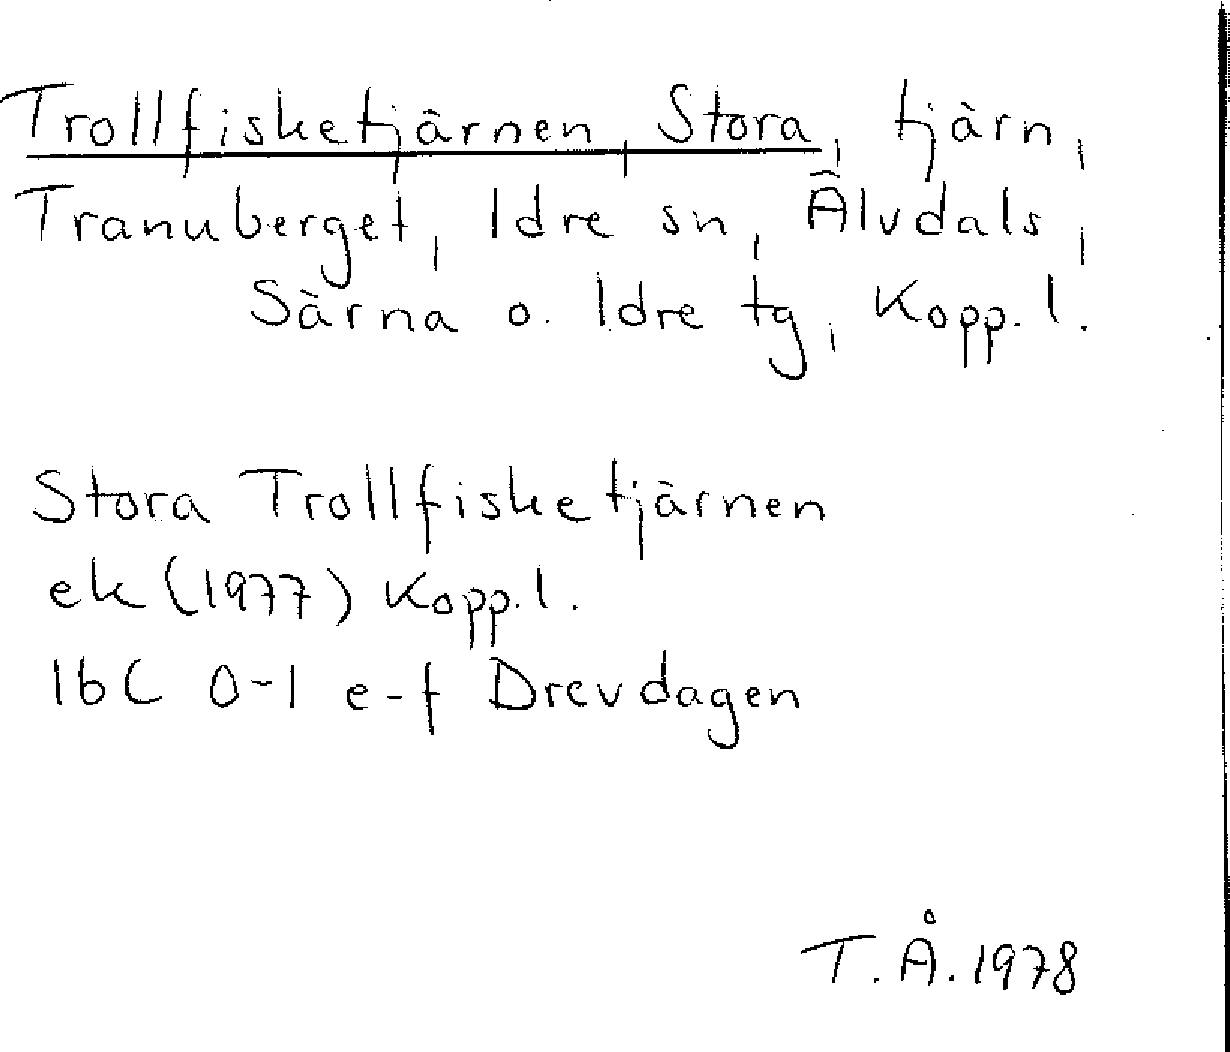 Trollfisketjärnen, Stora, tjärn,
Tranuberget, Idre sn, Älvdals,
Särna o. Idre tg, Kopp. l.
Stora Trollfisketjärnen
ek (1977) Kopp. l.
16C 0-1 e-f Drevdagen
T. Å. 1978